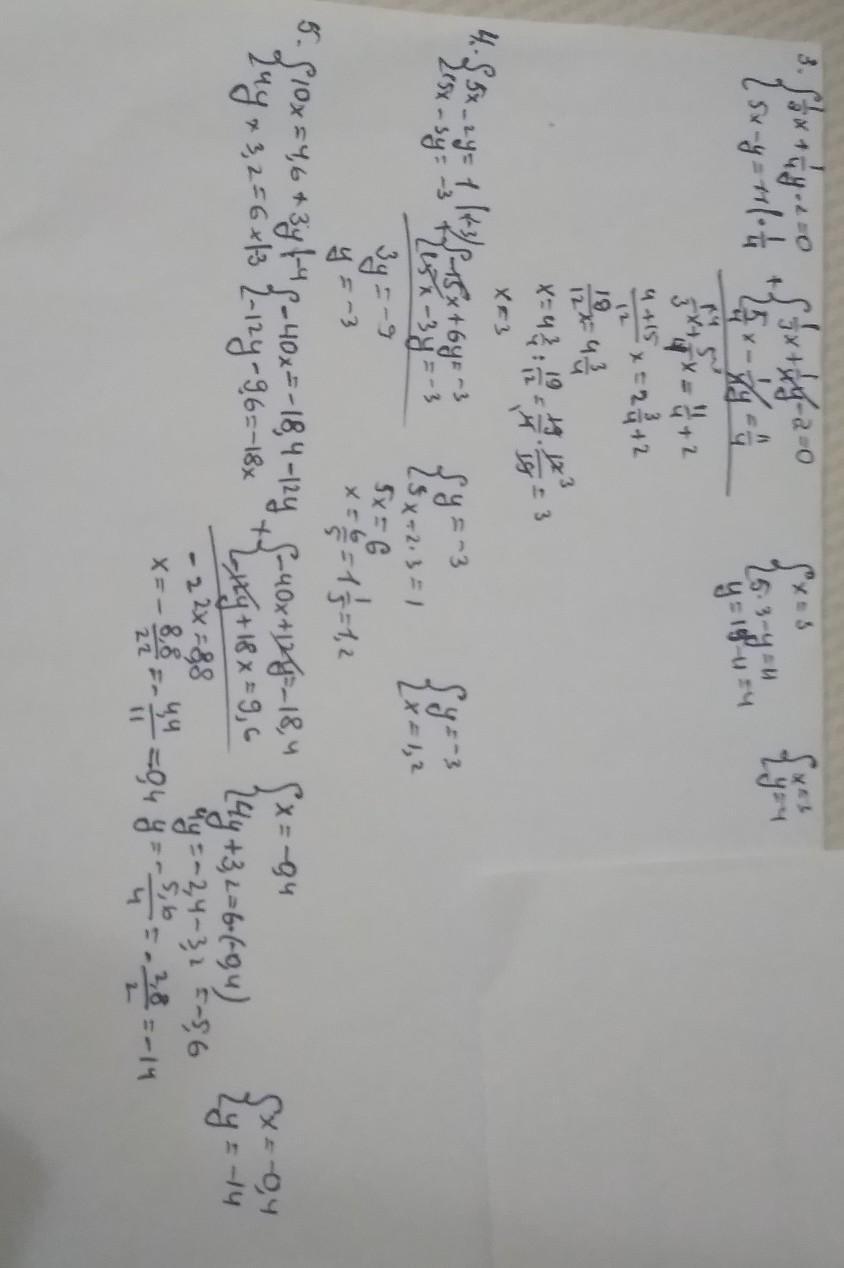 3. { 1/3 x + 1/4 y - 2 = 0
{ 5x - y = 11 | · 1/4
+ { 1/3 x + 1/4 y - 2 = 0
{ 5/4 x - 1/4 y = 11/4
1/3 x + 5/4 x = 11/4 + 2
4 + 15 / 12 x = 2 3/4 + 2
19/12 x = 4 3/4
x = 4 3/4 : 19/12 = 19/4 · 12/19 = 3
x = 3
{ x = 3
{ 5·3 - y = 11
y = 15 - 11 = 4
{ x = 3
{ y = 4
4. { 5x - 2y = 1 | (-3)
{ 15x - 3y = -3
+ { -15x + 6y = -3
{ 15x - 3y = -3
3y = -9
y = -3
{ y = -3
{ 5x + 2·3 = 1
5x = 6
x = 6/5 = 1 1/5 = 1,2
{ y = -3
{ x = 1,2
5. { 10x = 4,6 + 3y | -4
{ 4y + 3,2 = 6x | 3
{ -40x = -18,4 - 12y
{ -12y - 9,6 = -18x
+ { -40x + 12y = -18,4
{ -12y + 18x = 9,6
-22x = 8,8
x = - 8,8/22 = - 4,4/11 = 0,4
{ x = -0,4
{ 4y + 3,2 = 6·(-0,4)
4y = -2,4 - 3,2 = -5,6
y = - 5,6/4 = - 2,8/2 = -14
{ x = -0,4
{ y = -14